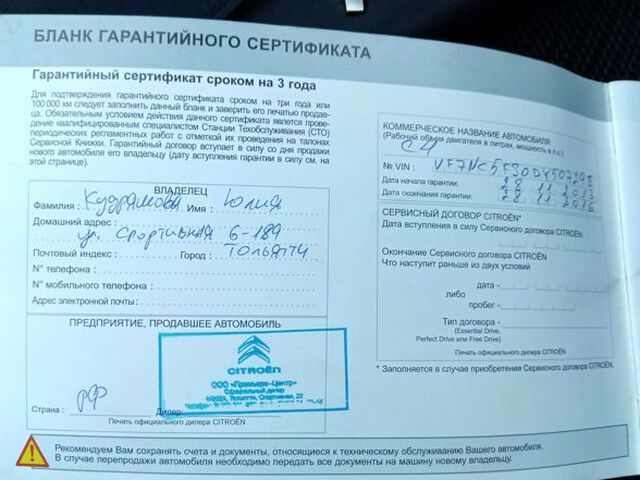 БЛАНК ГАРАНТИЙНОГО СЕРТИФИКАТА
Гарантийный сертификат сроком на 3 года
Для подтверждения гарантийного сертификата сроком на три года или
100 000 км следует заполнить данный бланк и заверить его печатью продав-
ца. Обязательным условием действия данного сертификата является прове-
дение квалифицированным специалистом Станции Техобслуживания (СТО)
периодических регламентных работ с отметкой их проведения на талонах
Сервисной Книжки. Гарантийный договор вступает в силу со дня продажи
нового автомобиля его владельцу (дату вступления гарантии в силу см. на
этой странице).
ВЛАДЕЛЕЦ
Фамилия : Имя : Юлия
Домашний адрес :
ул. Спортивная 6-189
Почтовый индекс : Город : Тольятти
N° телефона :
N° мобильного телефона :
Адрес электронной почты :
ПРЕДПРИЯТИЕ, ПРОДАВШЕЕ АВТОМОБИЛЬ
CITROËN
ООО «Премьера-Центр»
Официальный дилер
Тольятти, Спортивная, 22
Страна : РФ Дилер:
Печать официального дилера CITROËN
КОММЕРЧЕСКОЕ НАЗВАНИЕ АВТОМОБИЛЯ
(Рабочий объем двигателя в литрах, мощность в л.с.)
C4
№ VIN :
Дата начала гарантии: 28.11.2013
Дата окончания гарантии: 28.11.2016
СЕРВИСНЫЙ ДОГОВОР CITROËN*
Дата вступления в силу Сервисного договора CITROËN
Окончание Сервисного договора CITROËN
Что наступит раньше из двух условий
дата -
либо
пробег -
Тип договора -
(Essential Drive,
Perfect Drive или Free Drive)
Печать официального дилера CITROËN
* Заполняется в случае приобретения Сервисного договора CITROËN.
Рекомендуем Вам сохранять счета и документы, относящиеся к техническому обслуживанию Вашего автомобиля.
В случае перепродажи автомобиля необходимо передать все документы на машину новому владельцу.